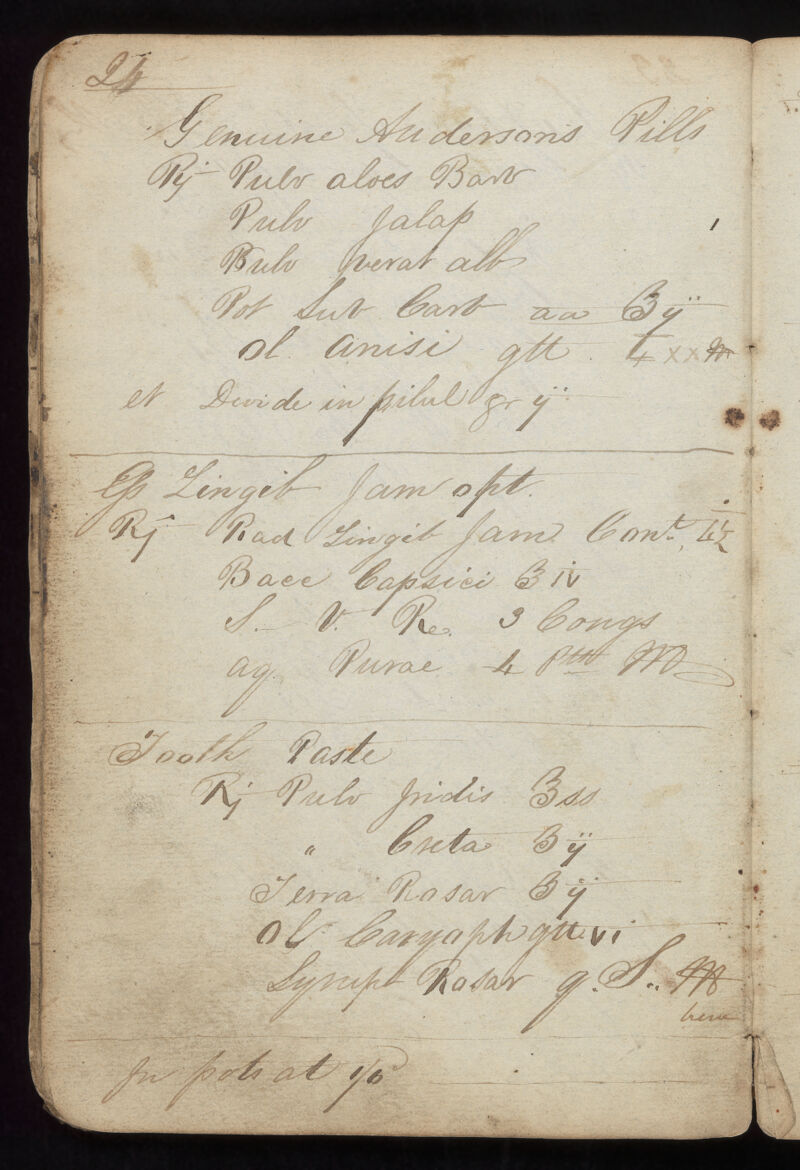 24
Genuine Andersons Pills
Rj Pulv aloes Barb
Pulv Jalap
Pulv verat alb
Pot Sub Carb aa ʒ ij
ol anisi gtt xx
et Devide in pilul gr ij
Zingib Jam opt.
Rj Rad Zingib Jam Cont.
Bacc Capsici ʒ iv
S. V. Re. 3 Congs
aq Purae 4 M
Tooth Paste
Rj Pulv Iridis ʒ ss
" Creta ʒ ij
Terra Rosar ʒ ij
ol Caryoph gtt vi
Syrup Rosar q. S.. M
bene
In pots at 1/6